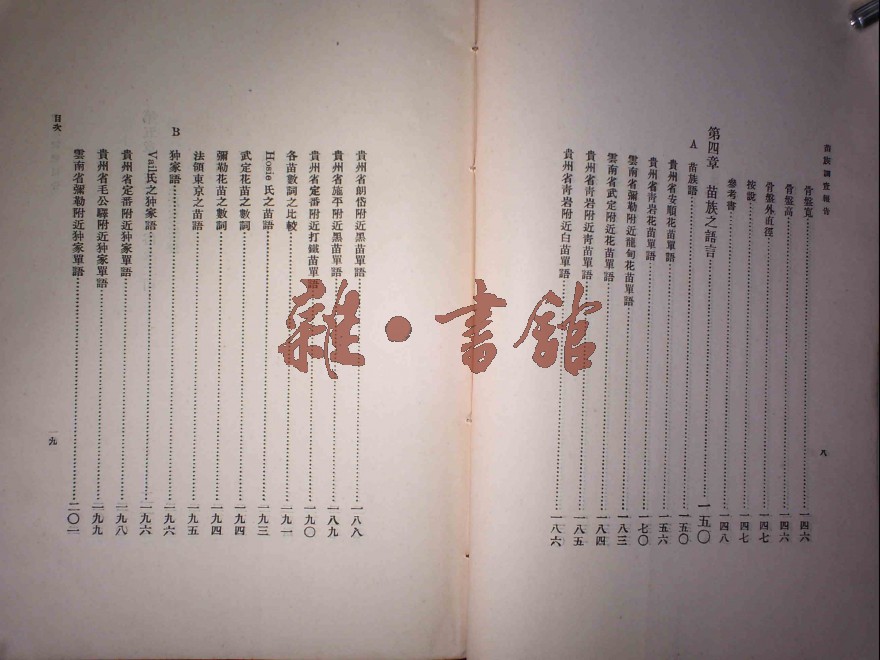 苗族調查報告
八
骨盤寬……一四六
骨盤高……一四六
骨盤外直徑……一四七
按說……一四七
參考書……一四八
第四章 苗族之語言……一五〇
A 苗族語……一五〇
貴州省安順花苗單語……一五六
貴州省靑岩花苗單語……一七〇
雲南省彌勒附近龍甸花苗單語……一八三
雲南省武定附近花苗單語……一八四
貴州省靑岩附近靑苗單語……一八五
貴州省靑岩附近白苗單語……一八六
貴州省朗岱附近黑苗單語……一八八
貴州省施平附近黑苗單語……一八九
貴州省定番附近打鐵苗單語……一九〇
各苗數詞之比較……一九一
Hosie 氏之苗語……一九三
武定花苗之數詞……一九四
彌勒花苗之數詞……一九四
法領東京之苗語……一九五
B 狆家語……一九六
Vail氏之狆家語……一九六
貴州省定番附近狆家單語……一九八
貴州省毛公驛附近狆家單語……一九九
雲南省彌勒附近狆家單語……二〇一
目次
一九
雜·書館